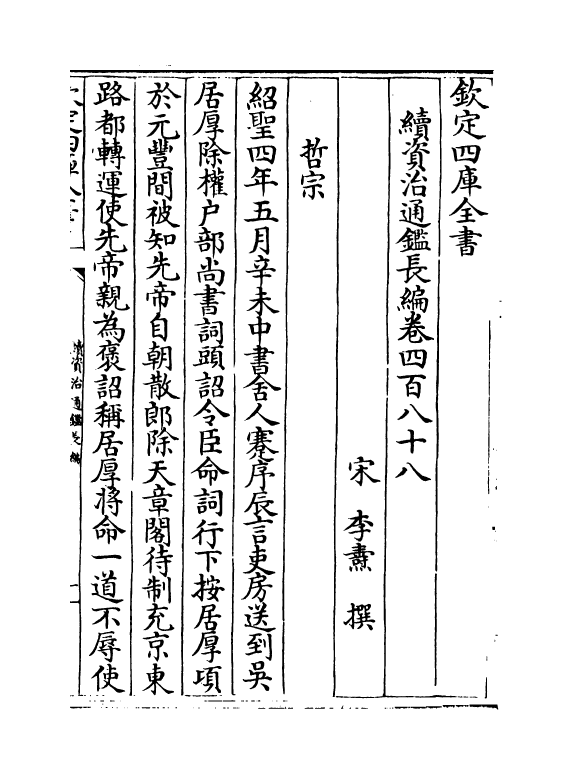 欽定四庫全書
續資治通鑑長編卷四百八十八
宋 李燾 撰
哲宗
紹聖四年五月辛未中書舍人蹇序辰言吏房送到吳
居厚除權户部尚書詞頭詔令臣命詞行下按居厚項
於元豐間被知先帝自朝散郎除天章閣待制充京東
路都轉運使先帝親為褒詔稱居厚將命一道不辱使
續資治通鑑長編